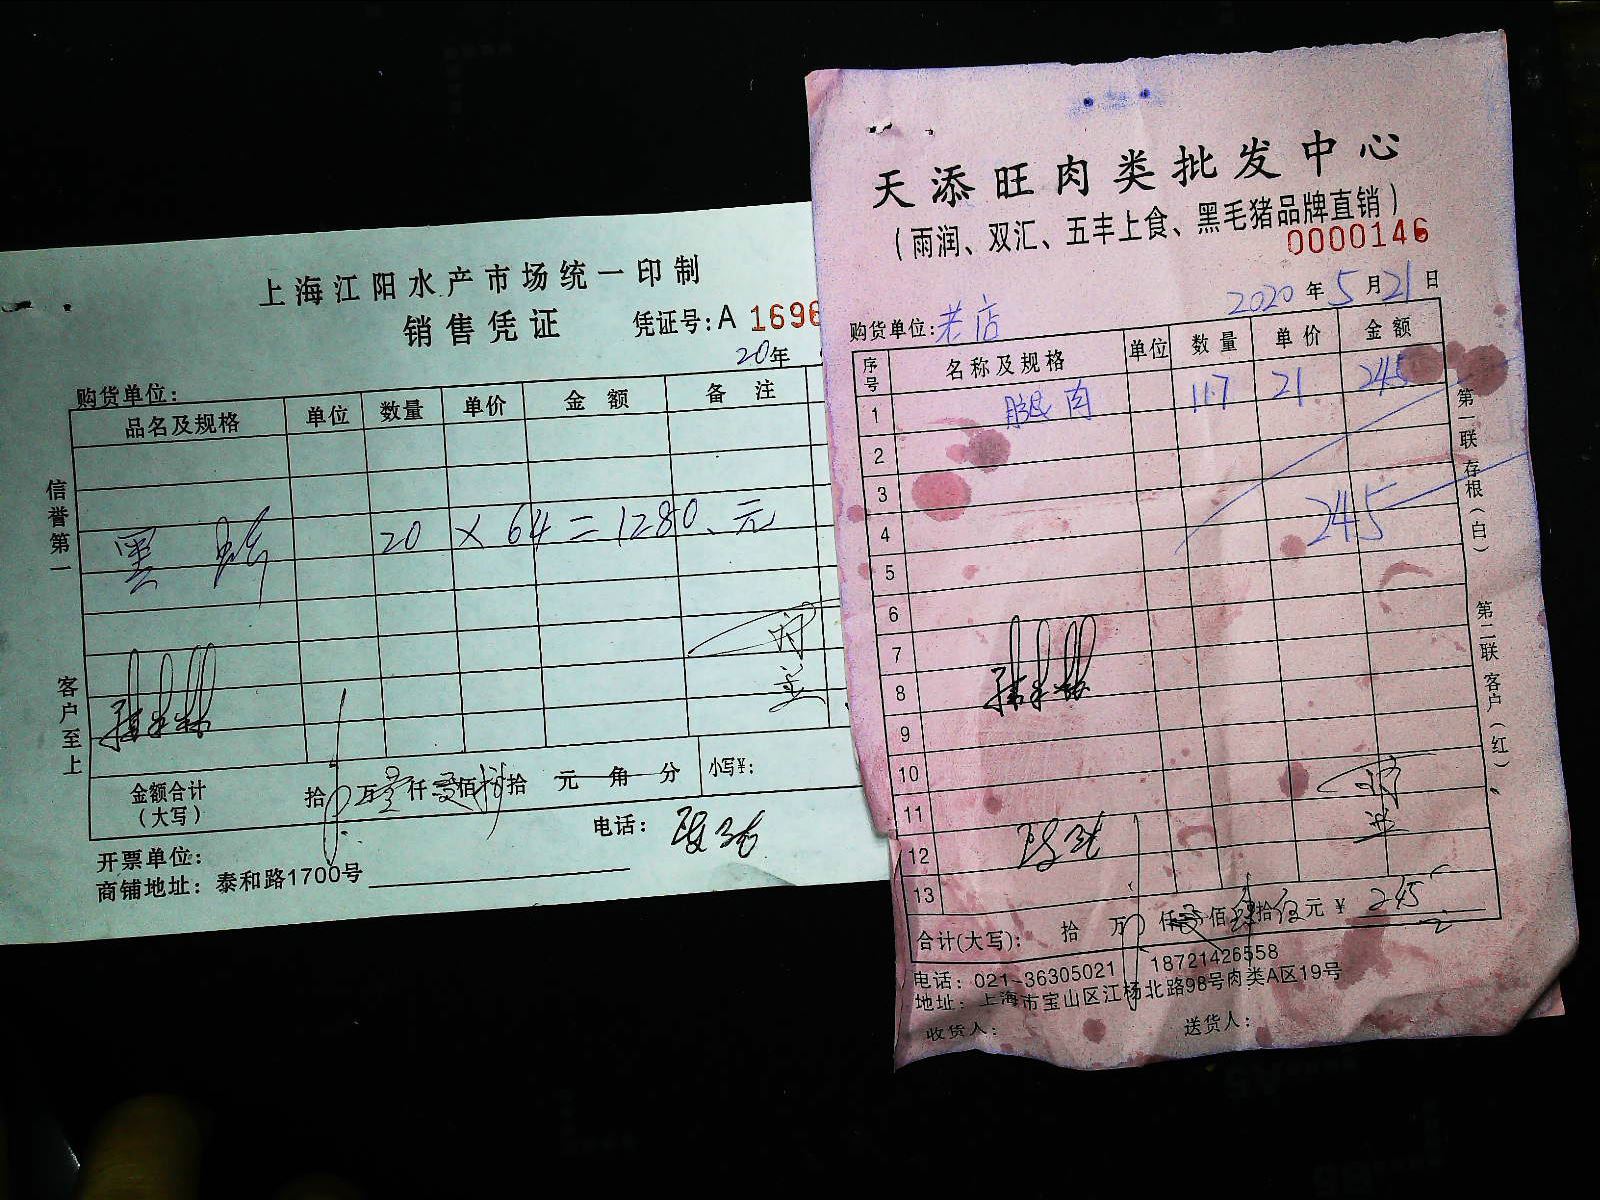 上海江阳水产市场统一印制
销售凭证 凭证号:A 1696
20年
购货单位:
品名及规格 单位 数量 单价 金额 备注
黑 20 × 64 = 1280.元
信誉第一
客户至上
金额合计(大写) 拾 万壹仟贰佰捌拾 元 角 分 小写¥:
电话:
开票单位:
商铺地址: 泰和路1700号
天添旺肉类批发中心
(雨润、双汇、五丰上食、黑毛猪品牌直销)
0000146
2020年5月21日
购货单位:老店
序号 名称及规格 单位 数量 单价 金额
1 腿肉 11.7 21 245
2
3
4 245
5
6
7
8
9
10
11
12
13
合计(大写): 拾 万 仟贰佰肆拾伍元 ¥ 245
电话: 021-36305021 18721426558
地址: 上海市宝山区江杨北路98号肉类A区19号
收货人: 送货人:
第一联 存根(白)
第二联 客户(红)